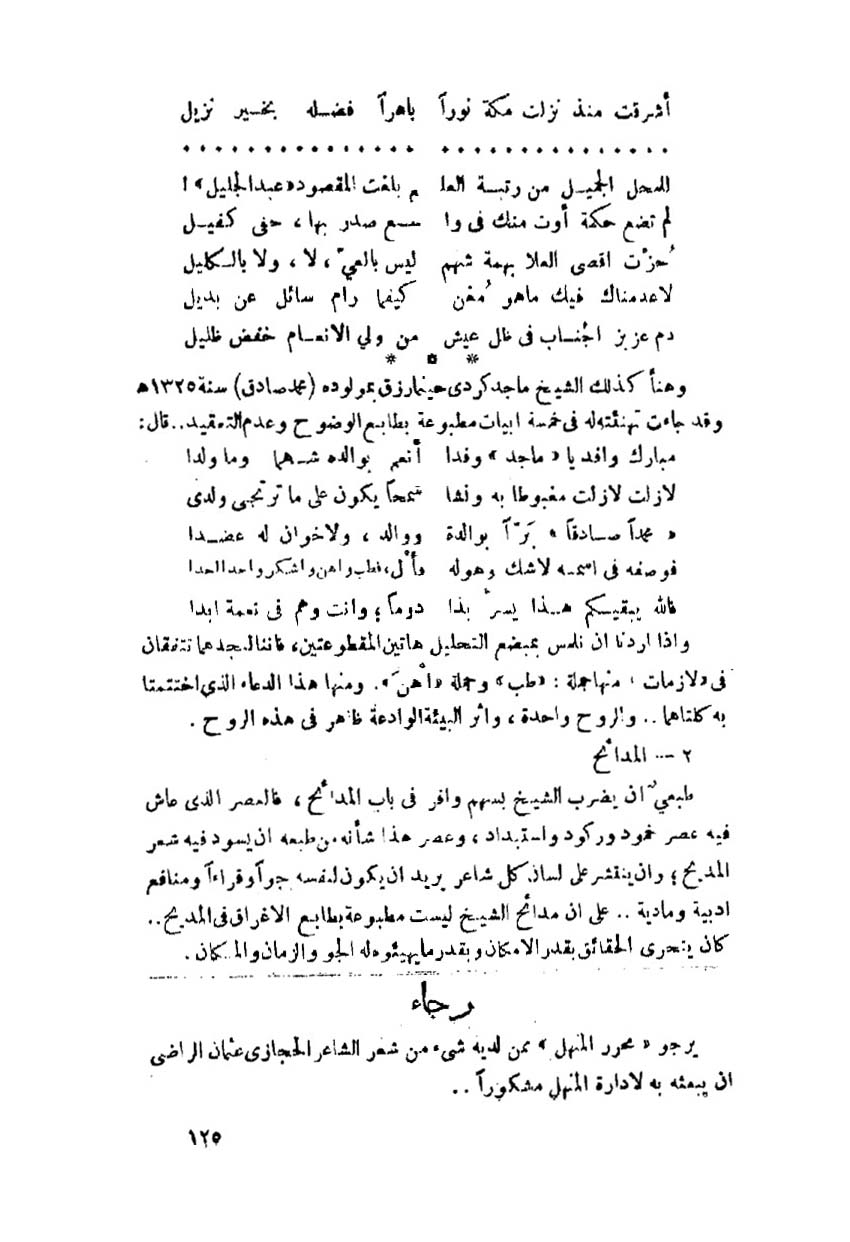 أشرقت منذ نزلت مكة نوراً باهراً فضله بخير نزيل
. . . . . . . . . . . . . . . . . . . . . . . . . . .
للمحل الجميل من رتبة العلـ ـم بلغت المقصود «عبدالجليل» ا
لم تضع حكمة أوت منك فى وا سع صدر بها ، حفى كفيل
حُزْت اقصى العلا بهمة شهم ليس بالعيّ ، لا ، ولا بالكليل
لاعدمناك فيك ماهو مُغن كيفما رام سائل عن بديل
دم عزيز الجُناب فى ظل عيش من ولي الانعام خفض ظليل
* * *
وهنأ كذلك الشيخ ماجدكردى حينمارزق بمولوده (محمدصادق) سنة ١٣٢٥ھ
وقد جاءت تهنئته له فى خمسة ابيات مطبوعة بطابع الوضوح وعدم التعقيد..قال:
مبارك وافد يا « ماجد » وفدا أنعم بوالده شهما وما ولدا
لازلت لازلت مغبوطا به ونشا سمحاً يكون على ما ترتجى ولدى
« محمداً صادقاً » بَرّاً بوالدة ووالد ، ولاخوان له عضدا
فوصفه فى اسمه لاشك وهوله فأْل، فطب واهن واشكر واحدا احدا
فالله يبقيكم هذا يسرّ بذا دوماً ؛ وانت وهم فى نعمة ابدا
واذا اردنا ان نلمس بمبضع التحليل هاتين المقطوعتين، فاننا لنجدهما تتفقان
فى «لازمات» منها جملة : «طب» وجملة «أهن». ومنها هذا الدعاء الذي اختتمتا
به كلتاهما .. والروح واحدة ، واثر البيئة الوادعة ظاهر فى هذه الروح .
٢ -- المدائح
طبعيّ ان يضرب الشيخ بسهم وافر فى باب المدائح ، فالعصر الذى عاش
فيه عصر خمود وركود واستبداد ، وعصر هذا شأنه من طبعه ان يسود فيه شعر
المديح ؛ وان ينتشر على لسان كل شاعر يريد ان يكون لنفسه جواً وقراءاً ومنافع
ادبية ومادية .. على ان مدائح الشيخ ليست مطبوعة بطابع الاغراق فى المديح..
كان يتحرى الحقائق بقدر الامكان وبقدر مايهيئوه له الجو والزمان والمكان .
رجاء
يرجو « محرر المنهل » ممن لديه شىء من شعر الشاعر الحجازى عثمان الراضى
ان يبعثه به لادارة المنهل مشكوراً ..
١٢٥